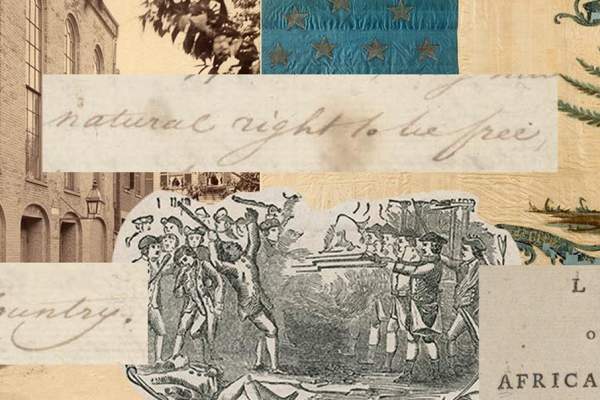 natural right to be free,
country.
L
O
AFRICA